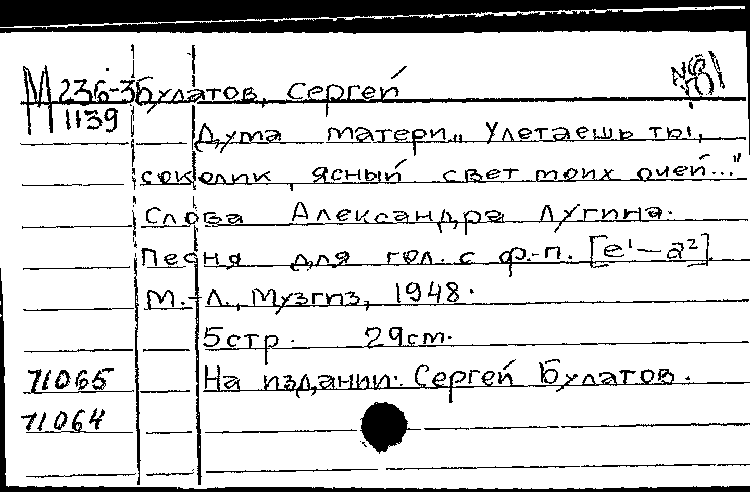 М 236-3 Булатов, Сергей
1139
Дума матери „Улетаешь ты,
соколик, ясный свет моих очей..."
Слова Александра Лугина.
Песня для гол. с ф.-п. [e¹—a²]
М.-Л., Музгиз, 1948.
5 стр. 29 см.
71065 На издании: Сергей Булатов.
71064